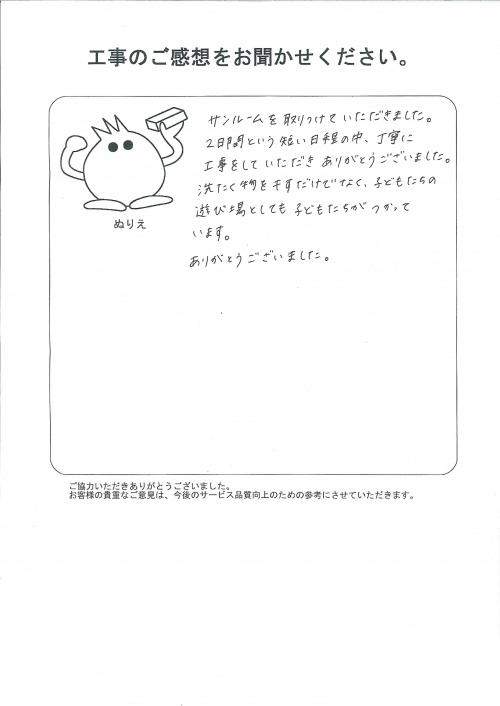 工事のご感想をお聞かせください。
サンルームを取りつけていただきました。
2日間という短い日程の中、丁寧に
工事をしていただきありがとうございました。
洗たく物を干すだけでなく、子どもたちの
遊び場としても子どもたちがつかって
います。
ありがとうございました。
ぬりえ
ご協力いただきありがとうございました。
お客様の貴重なご意見は、今後のサービス品質向上のための参考にさせていただきます。